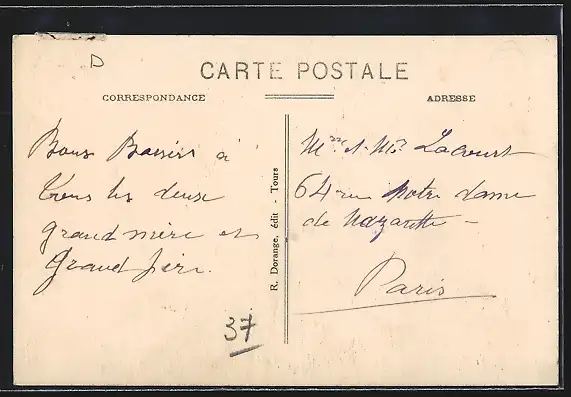 D
CARTE POSTALE
CORRESPONDANCE
ADRESSE
Bons Baisers à
tous les deux
grand mère et
Grand père.
37
R. Dorange, édit - Tours
Mme et Mr Lacourt
64 rue Notre dame
de Nazareth -
Paris